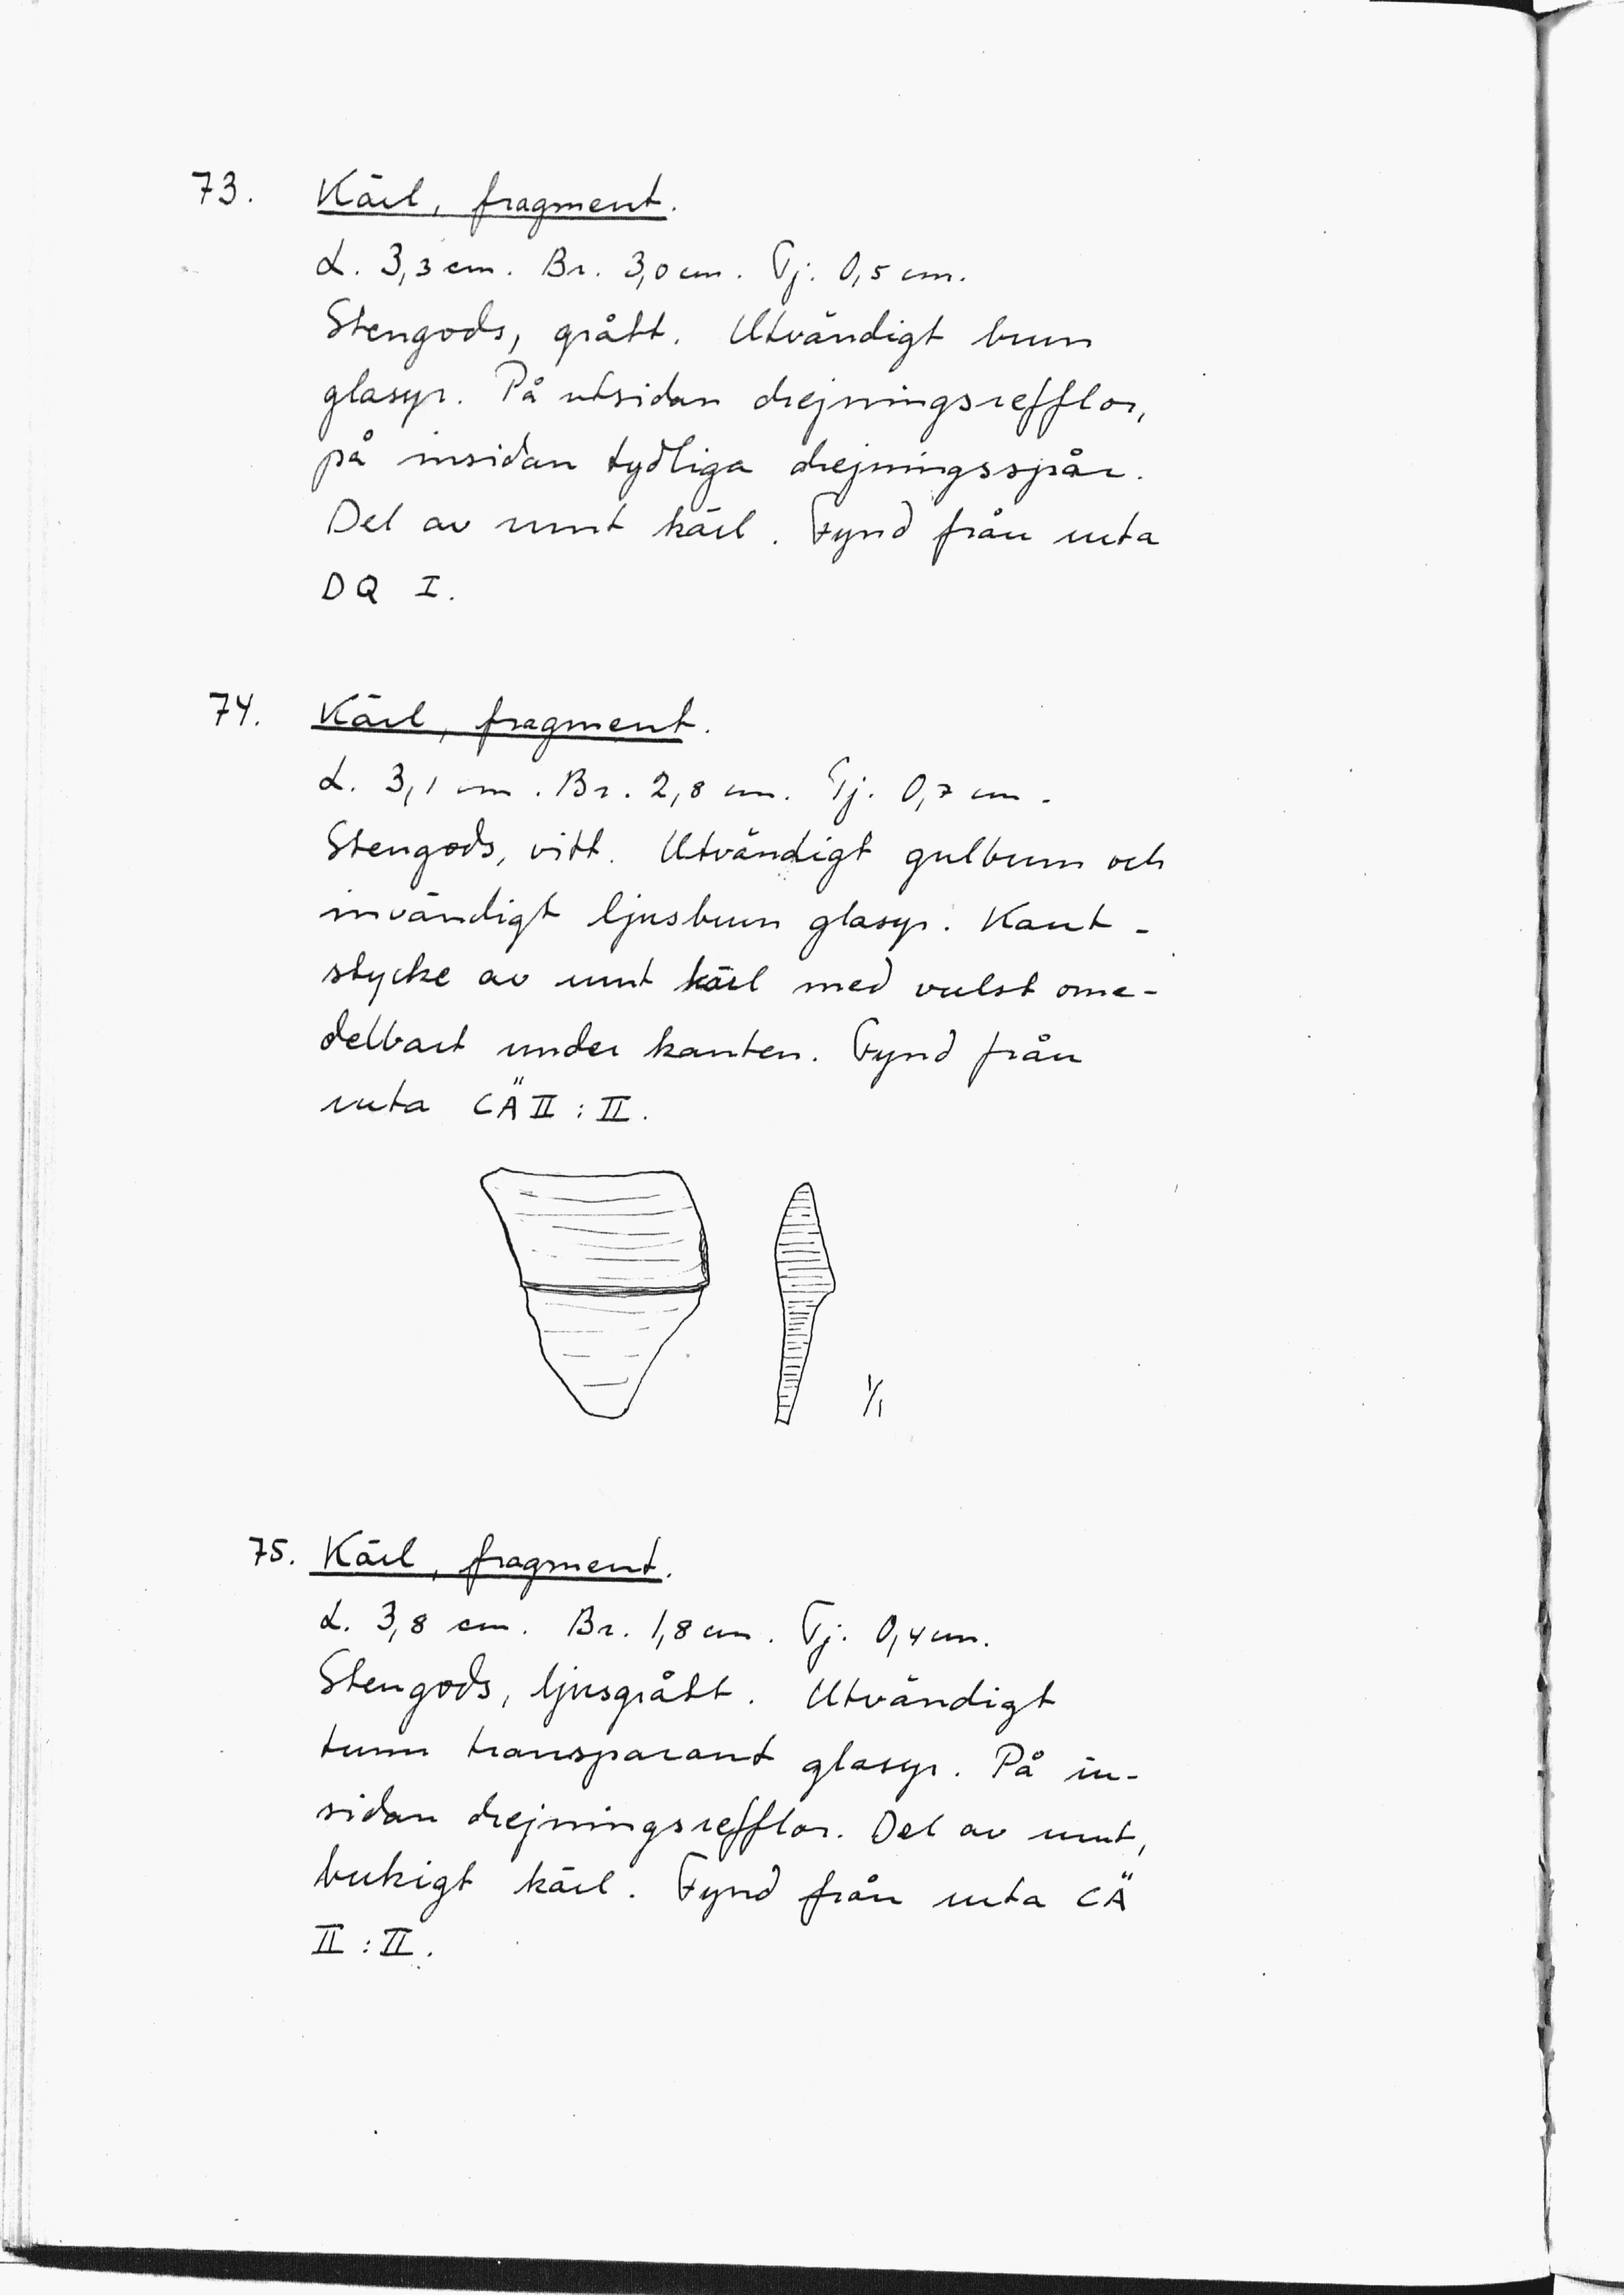 73. Kärl, fragment.
L. 3,3 cm. Br. 3,0 cm. Tj. 0,5 cm.
Stengods, grått. Utvändigt brun
glasyr. På utsidan drejningsrefflor,
på insidan tydliga drejningsspår.
Del av runt kärl. Fynd från ruta
DQ I.
74. Kärl, fragment.
L. 3,1 cm. Br. 2,8 cm. Tj. 0,7 cm.
Stengods, vitt. Utvändigt gulbrun och
invändigt ljusbrun glasyr. Kant-
stycke av runt kärl med vulst ome-
delbart under kanten. Fynd från
ruta CÄ II : II.
1/1
75. Kärl, fragment.
L. 3,8 cm. Br. 1,8 cm. Tj. 0,4 cm.
Stengods, ljusgrått. Utvändigt
tunn transparant glasyr. På in-
sidan drejningsrefflor. Del av runt,
bukigt kärl. Fynd från ruta CÄ
II : II.